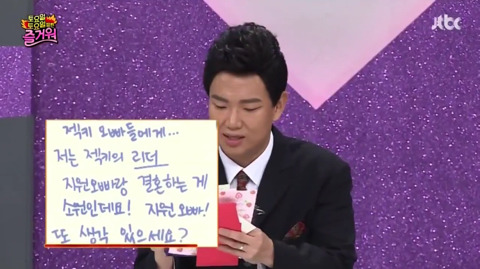 토요일
토요일은
즐거워
jtbc
젝키 오빠들에게...
저는 젝키의 리더
지원오빠랑 결혼하는 게
소원인데요! 지원오빠!
또 생각 있으세요?